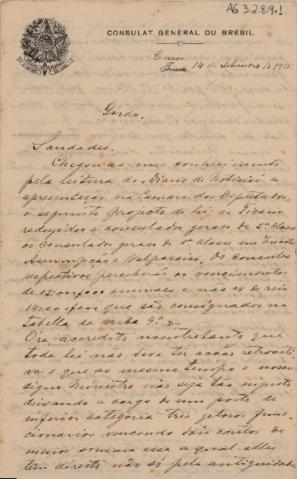 AG 3.2.8.9-1
CONSULAT GÉNÉRAL DU BRÉSIL
Trieste, 14 de
Gordo.
Saudades.
Chegou ao meu conhecimento
pela leitura do "Diario de Noticias" a
apresentação na Camara dos Deputados
o seguinte projecto de lei: "Ficam
reduzidos a consulados geraes de 2ª classe
os Consulados geraes de 1ª classe em Trieste,
Assumpção e Valparaiso. Os Consules
respectivos perceberão os vencimentos
de annuaes e não de reis
que são consignados na
tabella da verba 9ª."
Ora, acredito que
toda lei não deva ter acção retroacti-
va e que ao mesmo tempo o nosso
digno Ministro não seja tão injusto
deixando a cargo de um posto de
inferior categoria tres func-
cionarios vencendo dois contos de
menos somma essa a qual elles
tem direito não só pela antiguidade